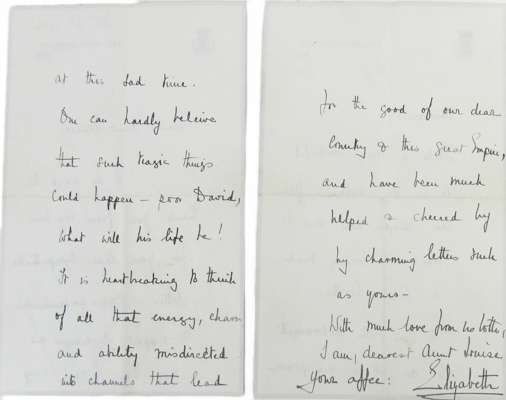 at this sad time.
One can hardly beleive
that such tragic things
could happen – poor David,
What will his life be!
It is heartbreaking to think
of all that energy, charm
and ability misdirected
into channels that lead
for the good of our dear
Country & this great Empire,
and have been much
helped & cheered by
by charming letters such
as yours –
With much love from us both,
I am, dearest Aunt Louise
Your affec: Elizabeth